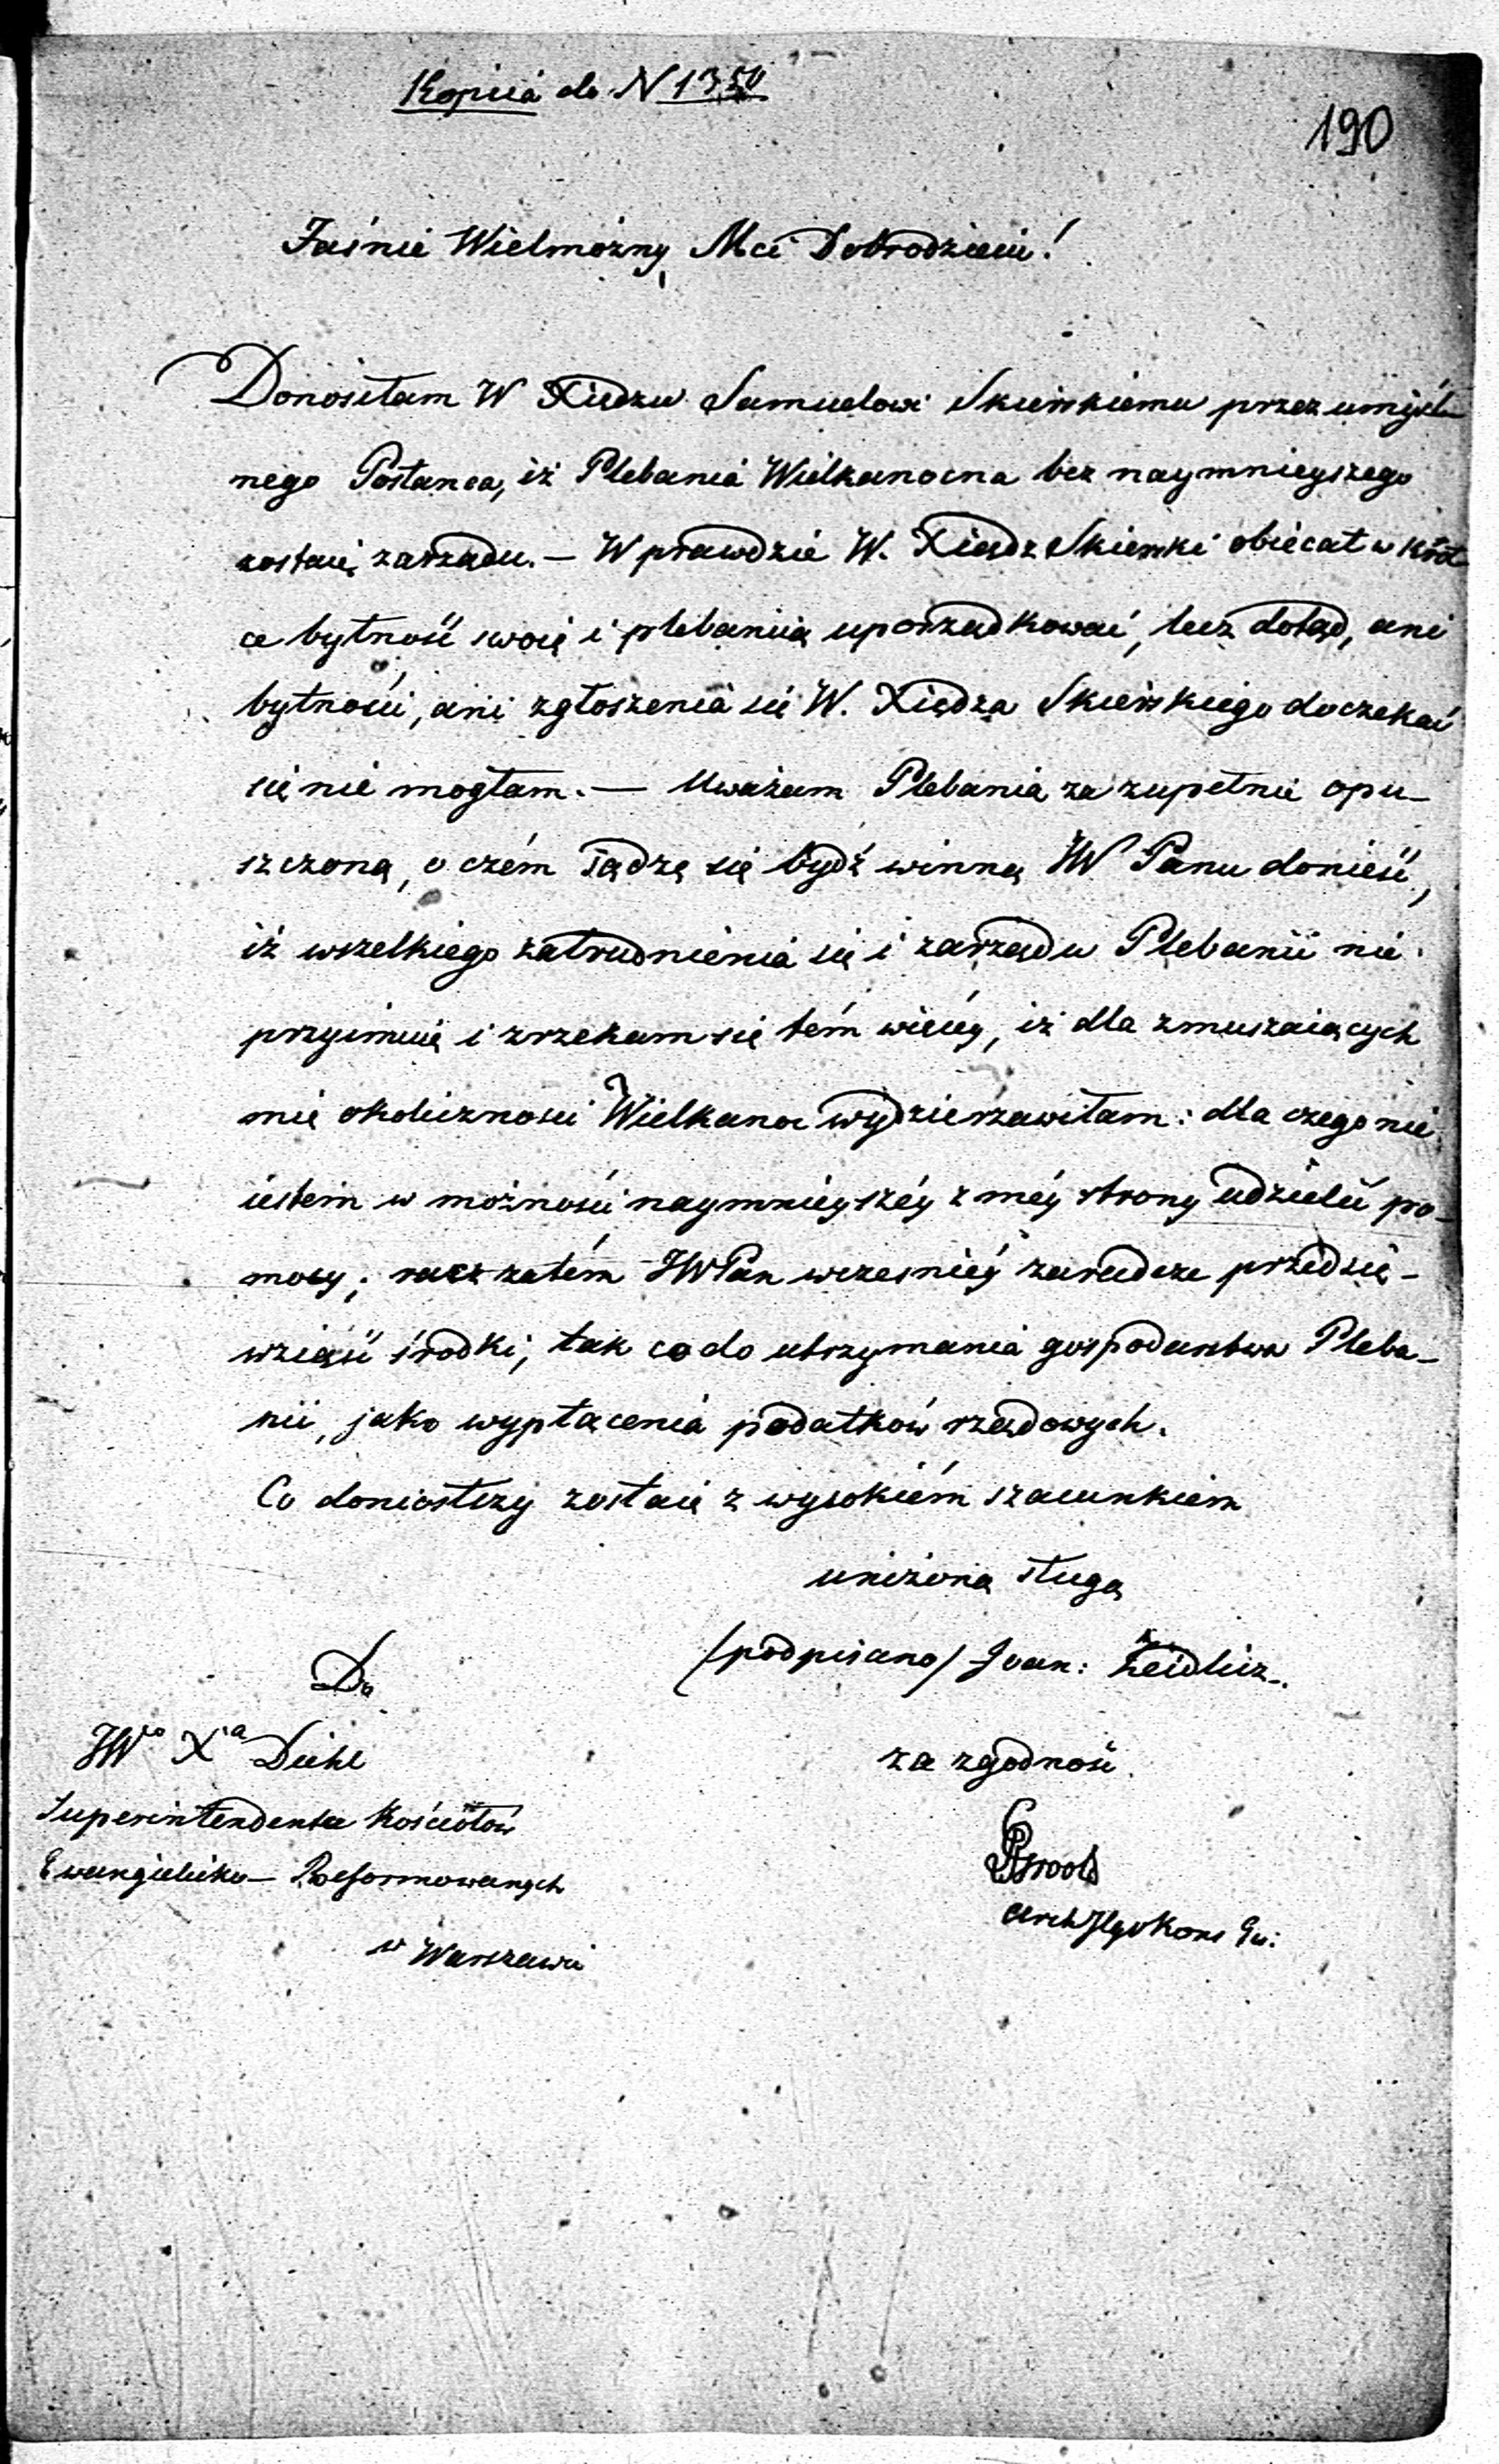 Kopiia do N 1350
190
Jaśnie Wielmożny Mci Dobrodzieiu!
Donosiłam W Xiędzu Samuelowi Skierskiemu przez umyśl-
nego Posłańca, iż Plebania Wielkanocna bez naymnieyszego
zostaię zarządu. — W prawdzie W. Xiądz Skierski obiecał w krót-
ce bytność swoię i plebaniią uporządkować, lecz dotąd, ani
bytności, ani zgłoszenia się W. Xiędza Skierskiego doczekać
się nie mogłam. — Uważam Plebanią za zupełnie opu-
szczoną, o czém sądzę się bydź winną JW Panu donieść,
iż wszelkiego zatrudnienia się i zarządu Plebanii nie
przyimuię i zrzekam się tém więcéy, iż dla zmuszaiących
mie okoliczności Wielkanoc wydzierzawiłam: dla czego nie
iestem w możności naymnieyszéy z méy strony udzielić po-
mocy; racz zatém JWPan wcześniéy zaradcze przedsię-
wziąść środki, tak co do utrzymania gospodarstwa Pleba-
nii, jako wypłacenia podatków rządowych.
Co doniosłszy zostaię z wysokiém szacunkiem
uniżoną sługą
/podpisano/ Joan: Zeidlicz.
Do
JWo Xa Diehl
Superintendenta Kościołów
Ewangielicko— Reformowanych
w Warszawie
za zgodność.